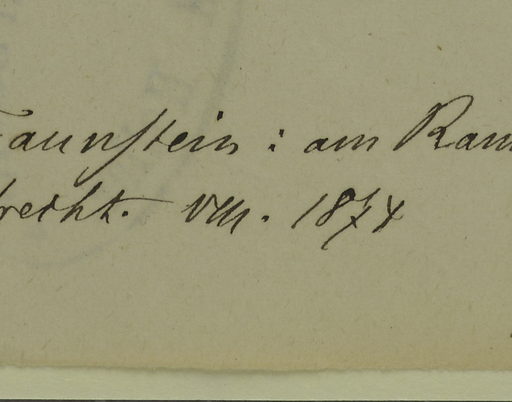 Taunstein : am Ram
brecht. VIII. 1874